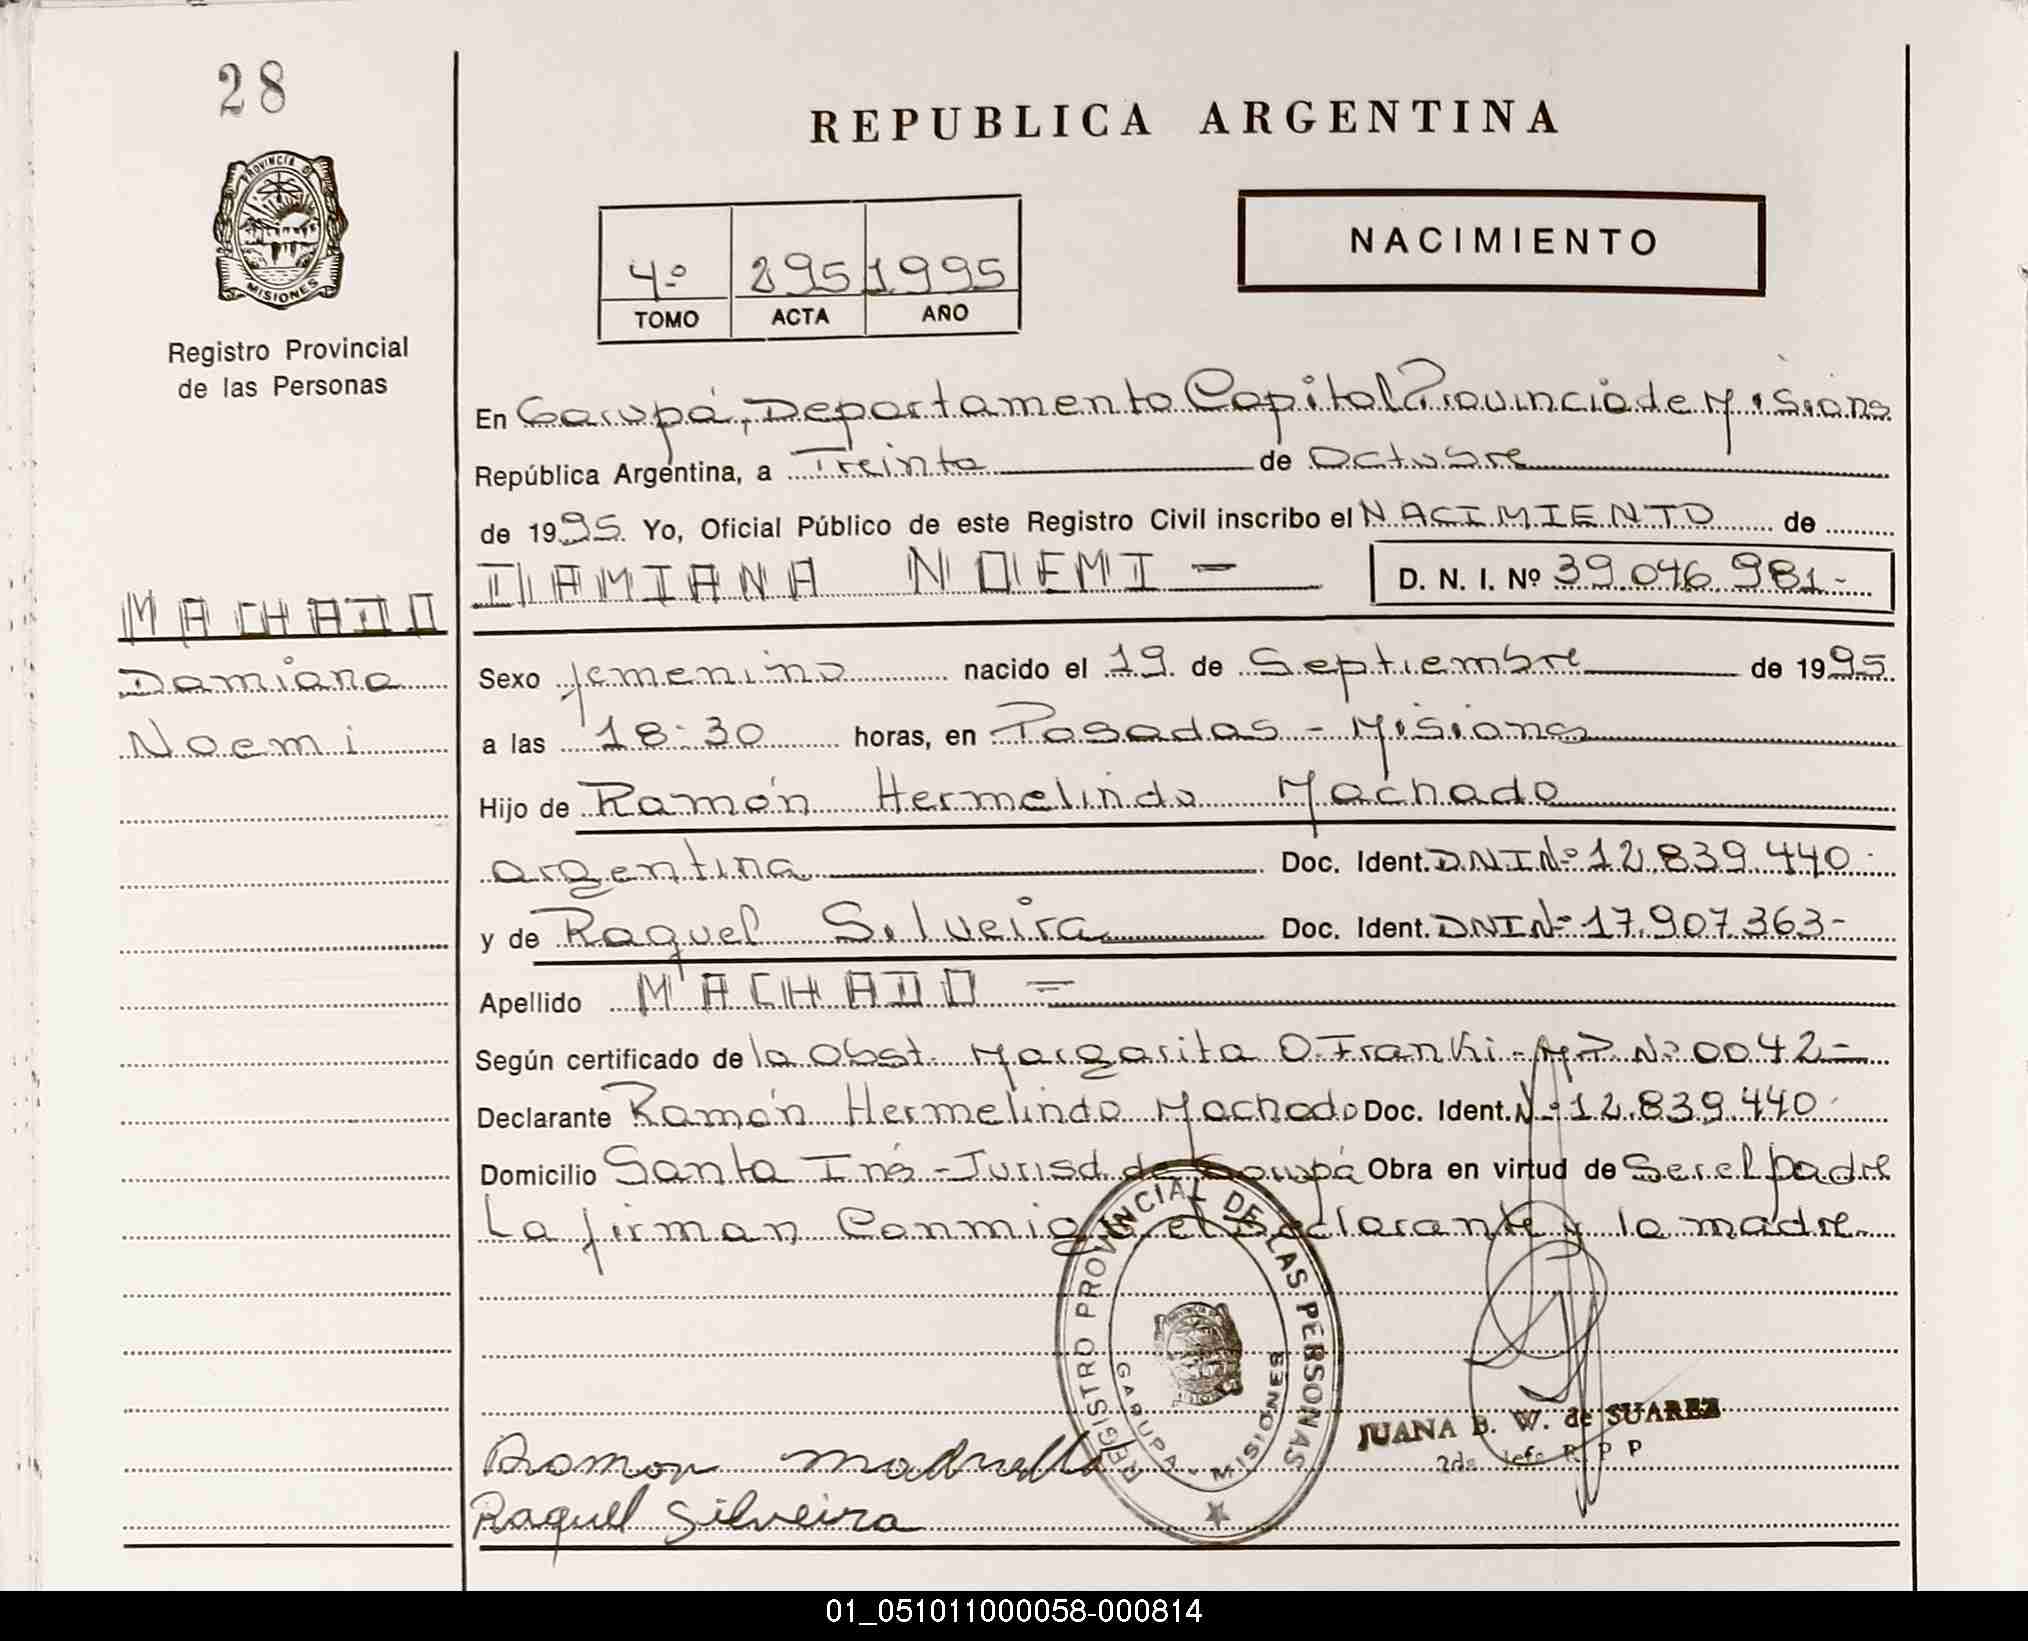 28
REPUBLICA ARGENTINA
PROVINCIA DE
MISIONES
Registro Provincial
de las Personas
4º 295 1995
TOMO ACTA AÑO
NACIMIENTO
En Garupá, Departamento Capital Provincia de Misions
República Argentina, a Treinta de Octubre
de 1995. Yo, Oficial Público de este Registro Civil inscribo el NACIMIENTO de
DAMIANA NOEMI - D. N. I. Nº 39.046.981-
MACHADO
Damiana
Noemi
Sexo femenino nacido el 19 de Septiembre de 1995
a las 18:30 horas, en Posadas - Misiones
Hijo de Ramón Hermelindo Machado
argentina Doc. Ident. DNI Nº 12.839.440-
y de Raquel Silveira Doc. Ident. DNI Nº 17.907.363-
Apellido MACHADO =
Según certificado de la Obst. Margarita O. Franki - MP Nº 0042-
Declarante Ramón Hermelindo Machado Doc. Ident. Nº 12.839.440
Domicilio Santa Inés - Jurisd. de Garupá Obra en virtud de Ser el padre
La firman Conmigo el Declarante y la madre
REGISTRO PROVINCIAL DE LAS PERSONAS
GARUPA - MISIONES
JUANA B. W. de SUAREZ
2da Jefe R P P
Ramon
Raquel Silveira
01_051011000058-000814